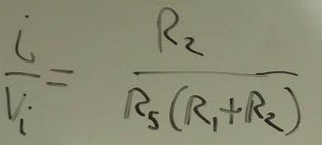 i/V_i = R_2/(R_5(R_1+R_2))